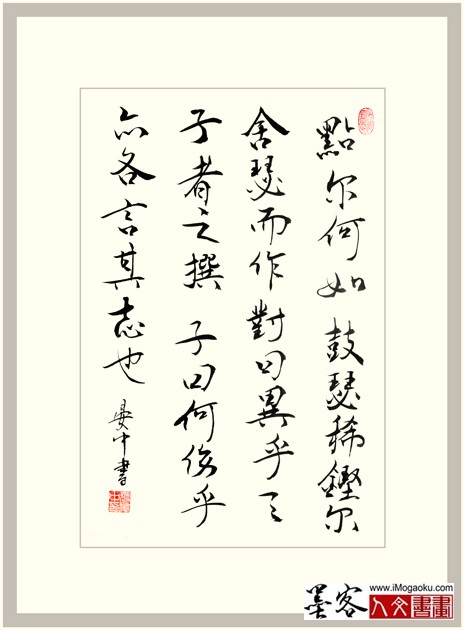 點尔何如 鼓瑟稀鏗尔
舍瑟而作 對曰異乎三
子者之撰 子曰何伤乎
亦各言其志也
晏中書
墨客
www.iMogaoku.com
人文書畫